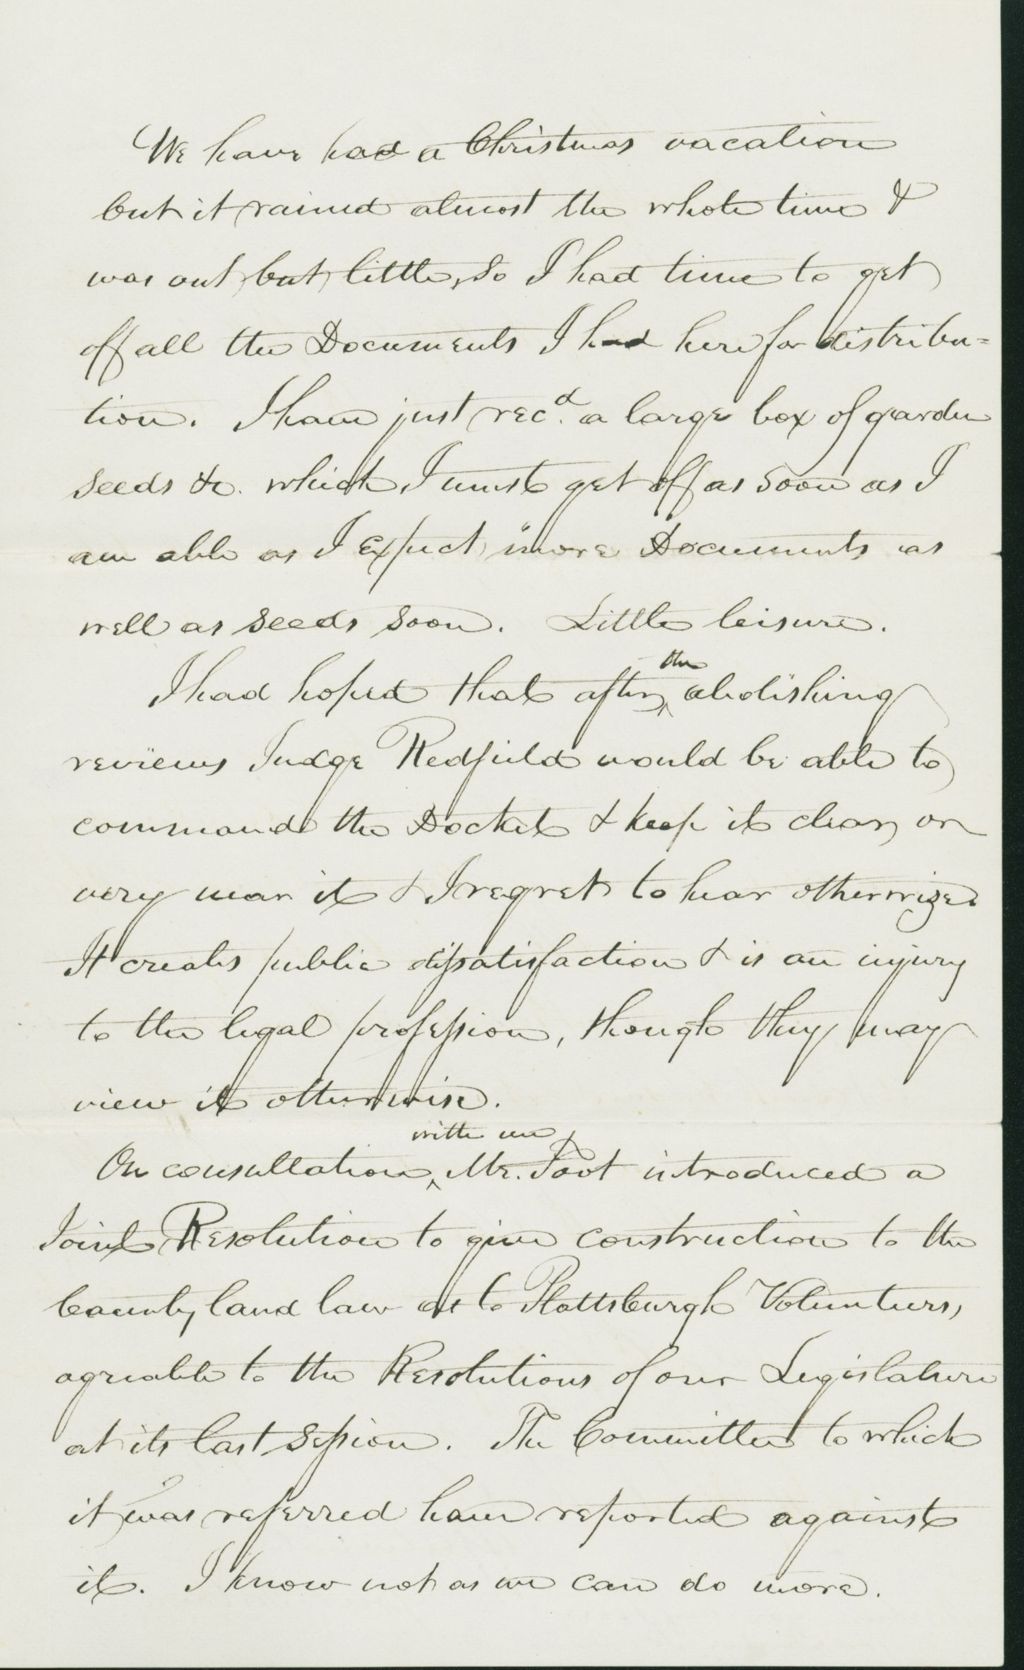 We have had a Christmas vacation
but it rained almost the whole time &
was out but little, so I had time to get
off all the Documents I had here for distribu=
tion. I have just recd. a large box of garden
seeds &c. which I must get off as soon as I
am able as I Expect more Documents as
well as seeds soon. Little leisure.
I had hoped that after the abolishing
reviews Judge Redfield would be able to
command the Docket & keep it clear, or
very near it & I regret to hear otherwize.
It creates public dissatisfaction & is an injury
to the legal profession, though they may
view it otherwise.
On consultation with me, Mr. Foot introduced a
Joint Resolution to give construction to the
bounty land law as to Plattsburgh Volunteers,
agreable to the Resolutions of our Legislature
at its last Session. The Committee to which
it was referred have reported against
it. I know not as we can do more.